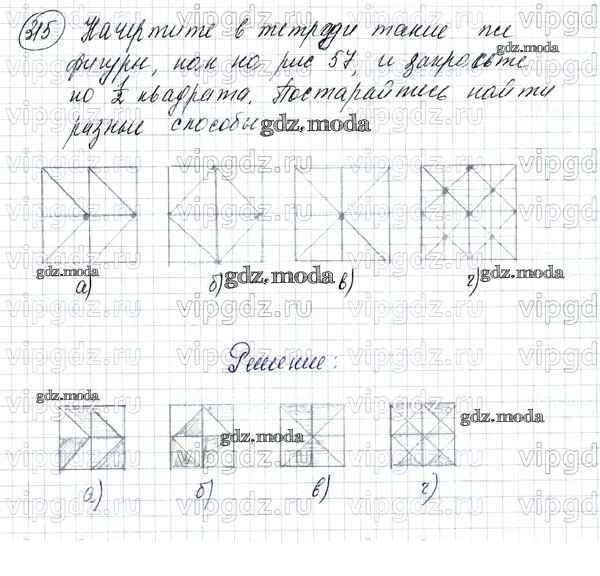 315 Начертите в тетради такие же
фигуры, как на рис 57, и закрасьте
по 1/2 квадрата. Постарайтесь найти
разные способы.
gdz.moda
gdz.moda
gdz.moda
gdz.moda
gdz.moda
а) б) в) г)
Решение:
gdz.moda
gdz.moda
gdz.moda
а) б) в) г)
vipgdz.ru